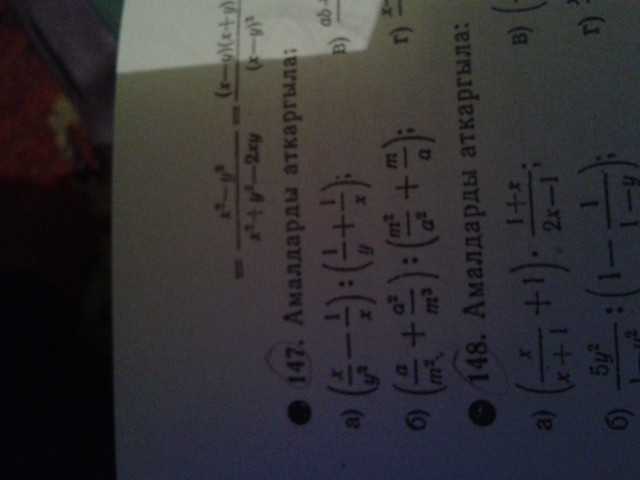 = x² − y² / x² + y² − 2xy = (x−y)(x+y) / (x−y)²
147. Амалдарды аткаргыла:
а) (x/y² − 1/x) : (1/y + 1/x); в) ab
б) (a/m² + a²/m³) : (m²/a² + m/a); г)
148. Амалдарды аткаргыла:
а) (x/x+1 + 1) · 1+x/2x−1; в) (
б) 5y² : (1 − 1/1−y); г)